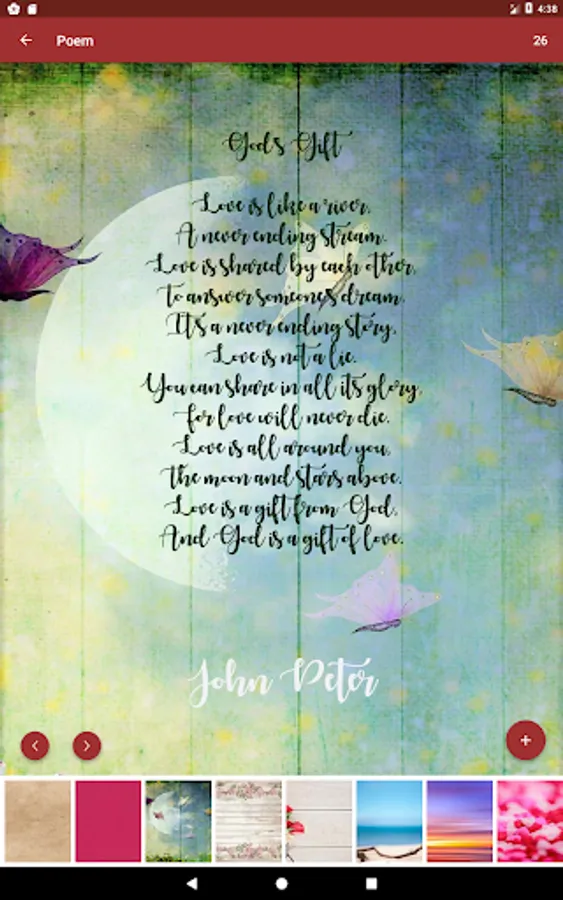 4:38
Poem
26
God's Gift
Love is like a river,
A never ending stream.
Love is shared by each other,
to answer someone's dream.
It's a never ending story,
Love is not a lie.
You can share in all it's glory,
for love will never die.
Love is all around you,
the moon and stars above.
Love is a gift from God,
And God is a gift of love.
John Peter